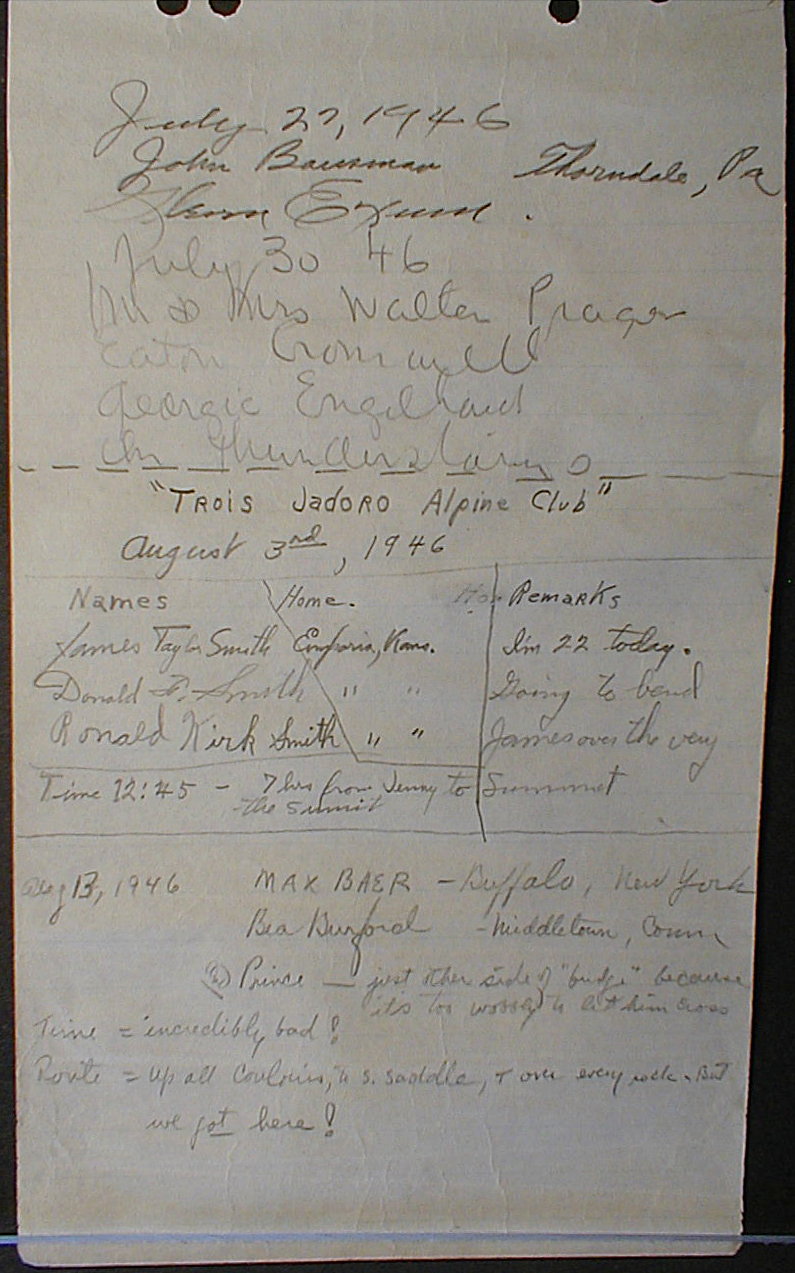 July 27, 1946
John Bausman Thorndale, Pa
Glenn Exum.
July 30 46
Mr & Mrs Walter Prager
Eaton Cromwell
Georgia Engelhard
In thunderstorms
"TROIS JADORO Alpine Club"
August 3rd, 1946
Names Home. Remarks
James Taylor Smith Emporia, Kans. I'm 22 today.
Donald F. Smith " " Going to bend
Ronald Kirk Smith " " James over the very
Time 12:45 - 7 hrs from Jenny to Summet
the summit
Aug 13, 1946 MAX BAER - Buffalo, New York
Bea Burford - Middletown, Conn
Prince — just other side of "bridge" because
it's too wobbly to let him cross
Time = incredibly bad!
Route = Up all couloirs, to s. saddle, + over every rock. But
we got here!